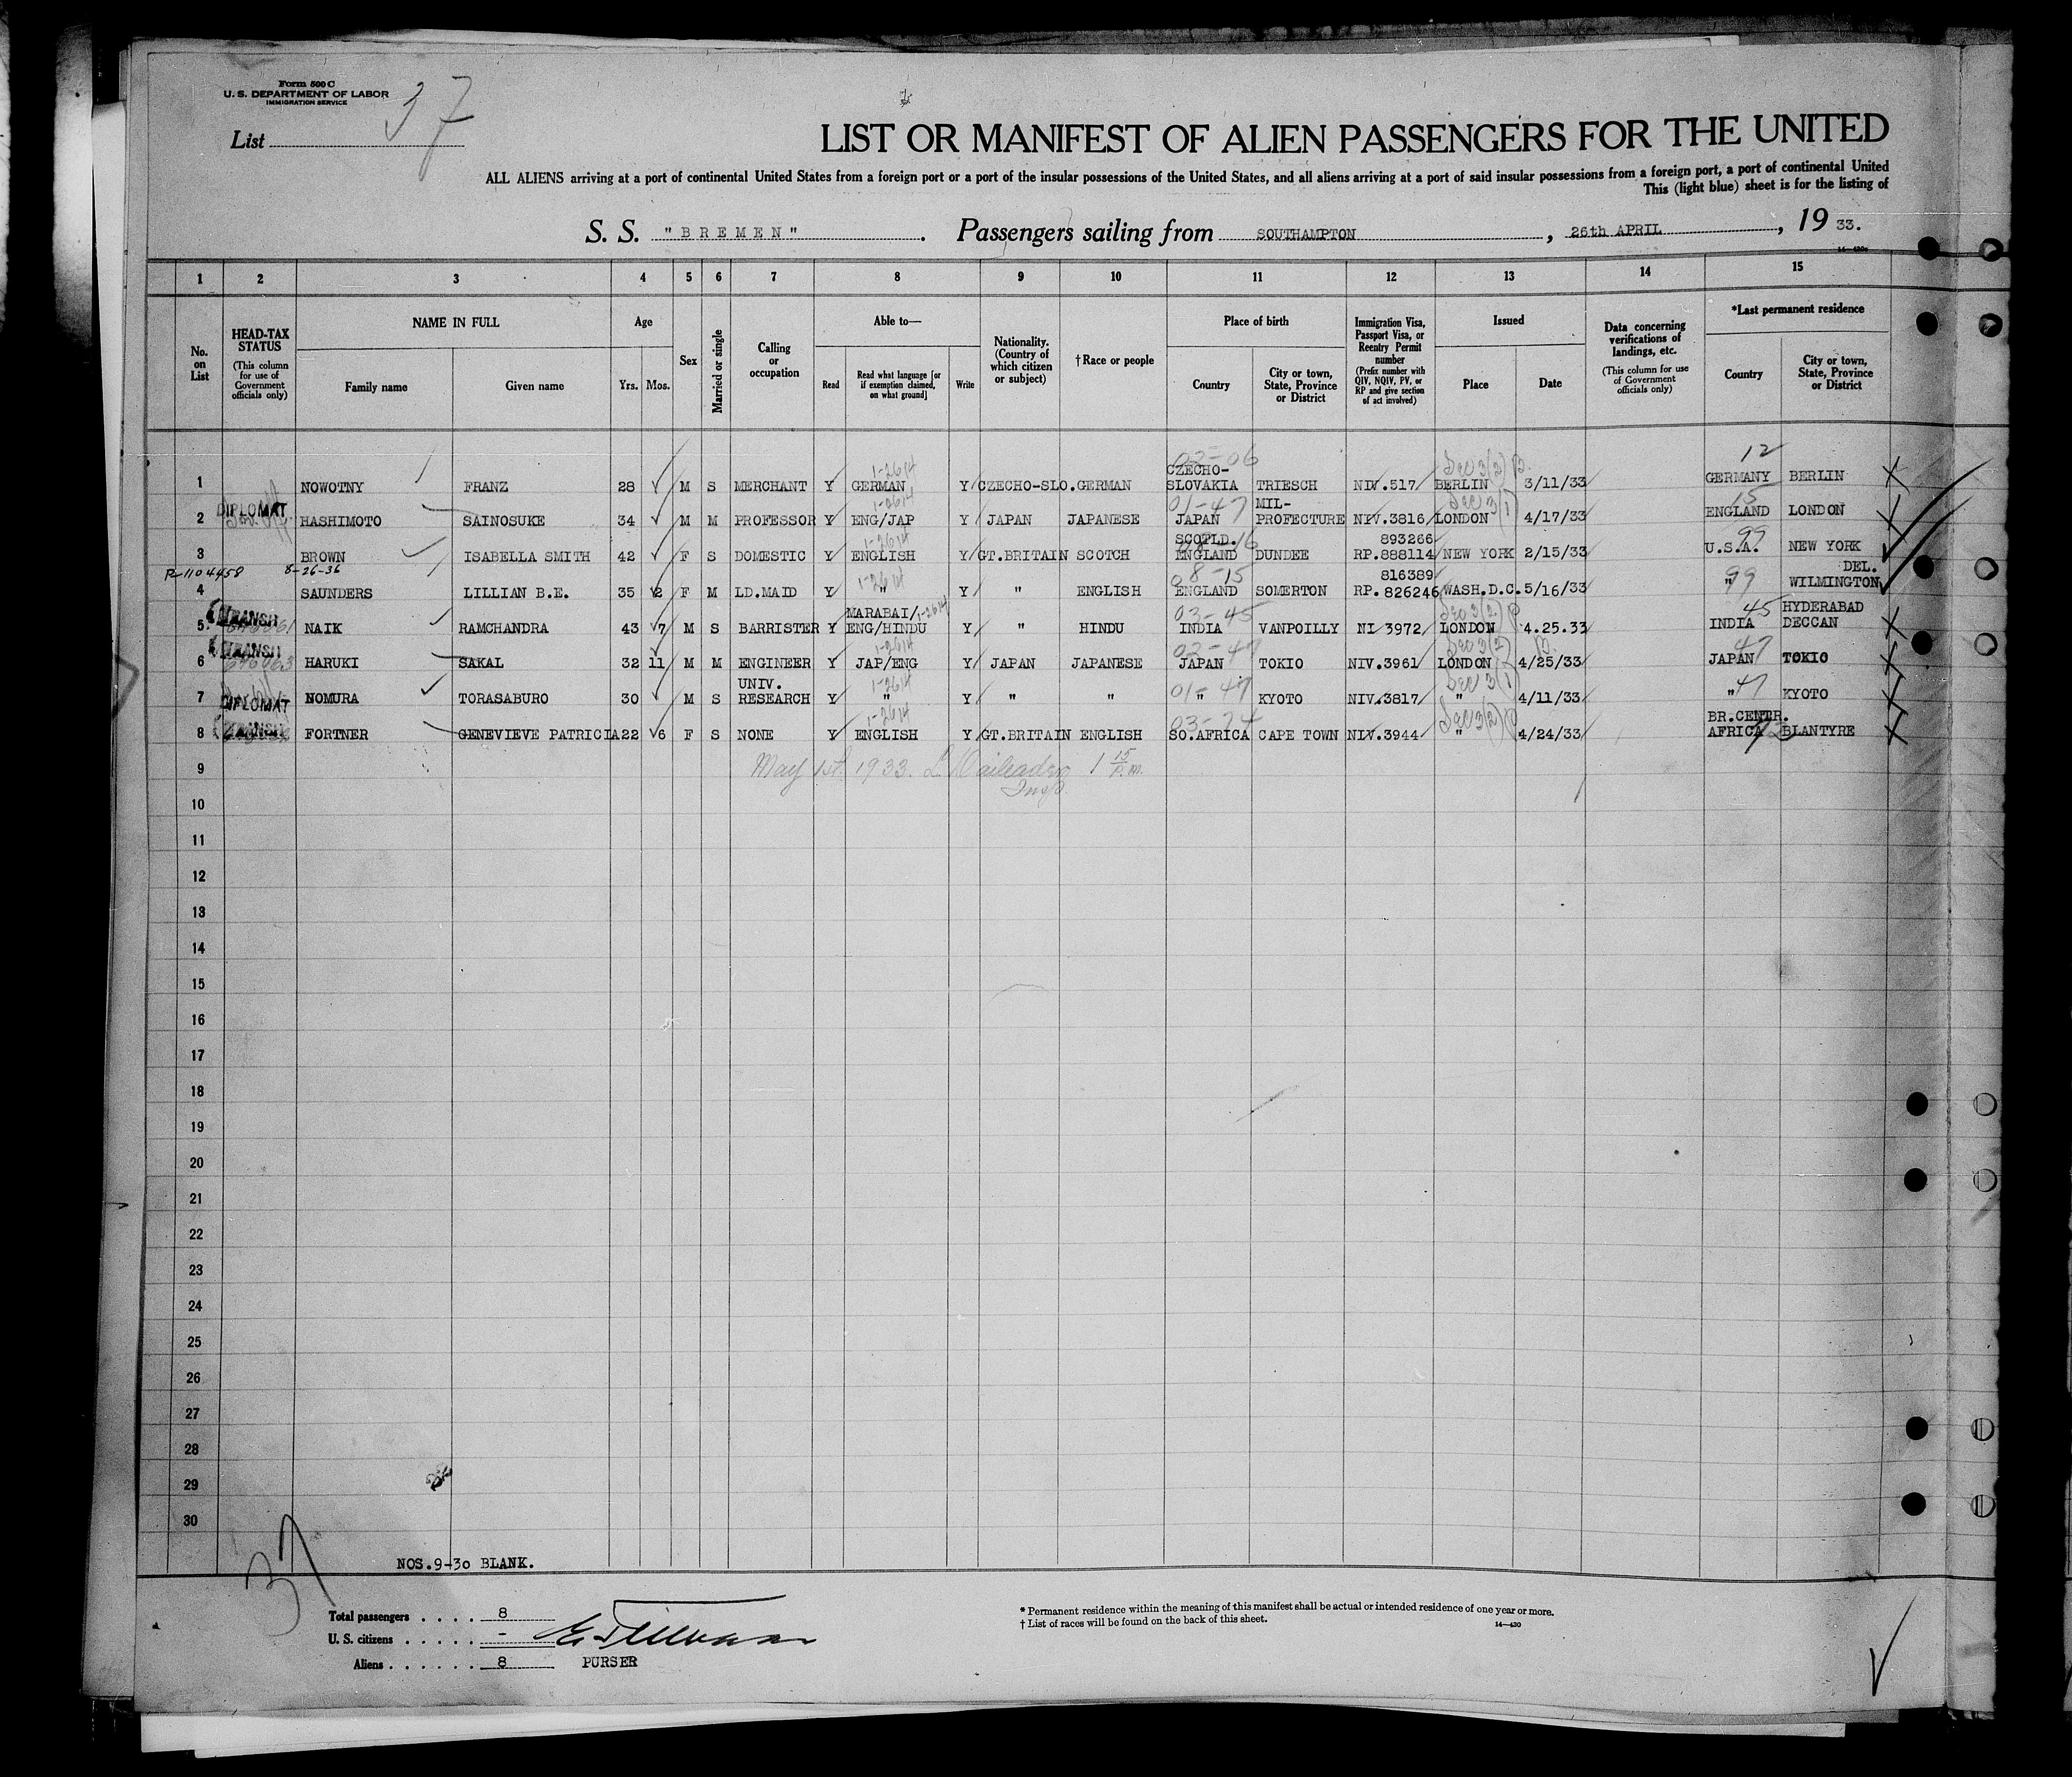 Form 500 C
U. S. DEPARTMENT OF LABOR
IMMIGRATION SERVICE
List 37
LIST OR MANIFEST OF ALIEN PASSENGERS FOR THE UNITED
ALL ALIENS arriving at a port of continental United States from a foreign port or a port of the insular possessions of the United States, and all aliens arriving at a port of said insular possessions from a foreign port, a port of continental United
This (light blue) sheet is for the listing of
S. S. "BREMEN". Passengers sailing from SOUTHAMPTON, 26th APRIL, 19 33.
1 2 3 4 5 6 7 8 9 10 11 12 13 14 15
No. on List
HEAD-TAX STATUS (This column for use of Government officials only)
NAME IN FULL
Family name Given name
Age
Yrs. Mos.
Sex
Married or single
Calling or occupation
Able to—
Read
Read what language [or if exemption claimed, on what ground]
Write
Nationality. (Country of which citizen or subject)
†Race or people
Place of birth
Country
City or town, State, Province or District
Immigration Visa, Passport Visa, or Reentry Permit number (Prefix number with QIV, NQIV, PV, or RP and give section of act involved)
Issued
Place Date
Data concerning verifications of landings, etc. (This column for use of Government officials only)
*Last permanent residence
Country
City or town, State, Province or District
02-06 Sec 3(2) 12
1 NOWOTNY FRANZ 28 M S MERCHANT Y GERMAN Y CZECHO-SLO. GERMAN CZECHO-SLOVAKIA TRIESCH NIV.517 BERLIN 3/11/33 GERMANY BERLIN
01-47 Sec 3(1) 15
2 DIPLOMAT HASHIMOTO SAINOSUKE 34 M M PROFESSOR Y ENG/JAP Y JAPAN JAPANESE JAPAN MIL-PROFECTURE NIV.3816 LONDON 4/17/33 ENGLAND LONDON
3 BROWN ISABELLA SMITH 42 F S DOMESTIC Y ENGLISH Y GT.BRITAIN SCOTCH SCOTLD. ENGLAND DUNDEE 893266 RP.888114 NEW YORK 2/15/33 U.S.A. 99 NEW YORK
R-1104458 8-26-36
08-15
4 SAUNDERS LILLIAN B.E. 35 2 F M LD.MAID Y " Y " ENGLISH ENGLAND SOMERTON 816389 RP.826246 WASH.D.C. 5/16/33 " 99 DEL. WILMINGTON
03-45 Sec 3(2) 45
5 TRANSIT NAIK RAMCHANDRA 43 7 M S BARRISTER Y MARABAI/ENG/HINDU Y " HINDU INDIA VANPOILLY NI 3972 LONDON 4.25.33 INDIA HYDERABAD DECCAN
02-47 Sec 3(2) 47
6 TRANSIT HARUKI SAKAL 32 11 M M ENGINEER Y JAP/ENG Y JAPAN JAPANESE JAPAN TOKIO NIV.3961 LONDON 4/25/33 JAPAN TOKIO
01-47 Sec 3(1) 47
7 DIPLOMAT NOMURA TORASABURO 30 M S UNIV. RESEARCH Y " Y " " " KYOTO NIV.3817 " 4/11/33 " KYOTO
03-74 Sec 3(2)
8 TRANSIT FORTNER GENEVIEVE PATRICIA 22 6 F S NONE Y ENGLISH Y GT.BRITAIN ENGLISH SO.AFRICA CAPE TOWN NIV.3944 " 4/24/33 BR.CENTR. AFRICA BLANTYRE
9 May 1st 1933. 1 15 P.M.
Insp.
10
11
12
13
14
15
16
17
18
19
20
21
22
23
24
25
26
27
28
29
30
37
NOS.9-30 BLANK.
Total passengers . . . . 8
U. S. citizens . . . . . -
Aliens . . . . . . 8
PURSER
* Permanent residence within the meaning of this manifest shall be actual or intended residence of one year or more.
† List of races will be found on the back of this sheet.
14—430